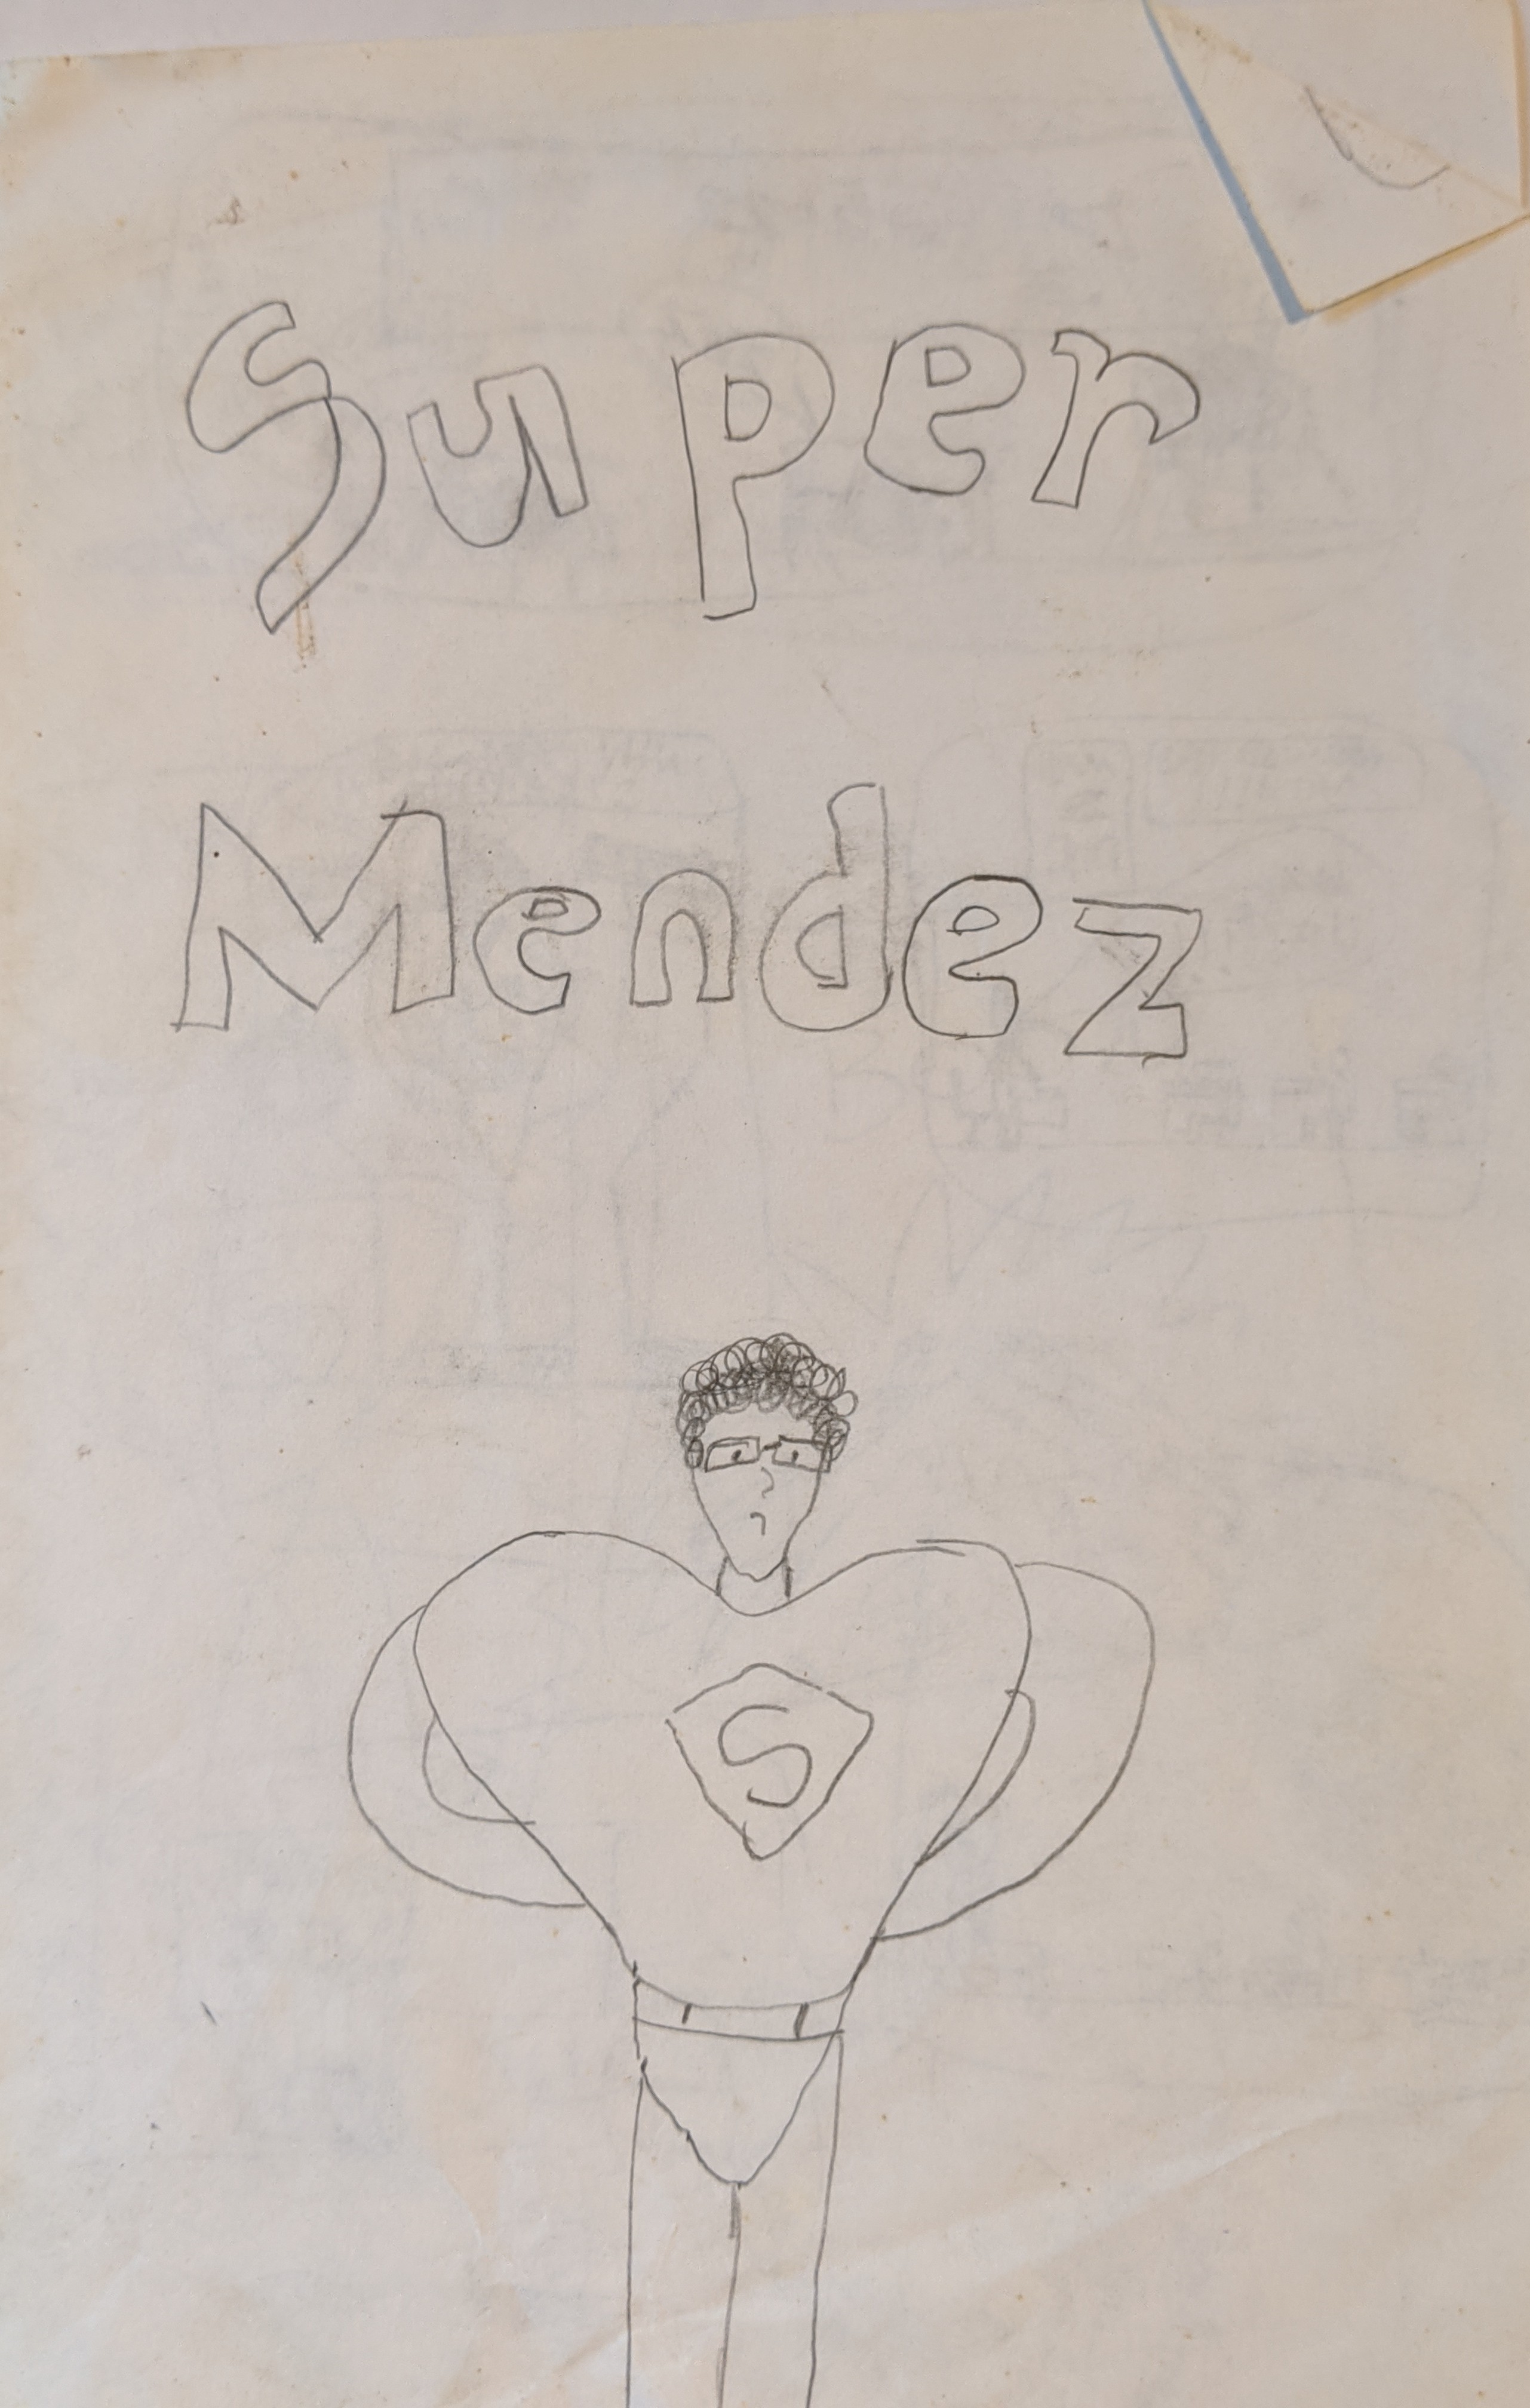 Super
Mendez
S